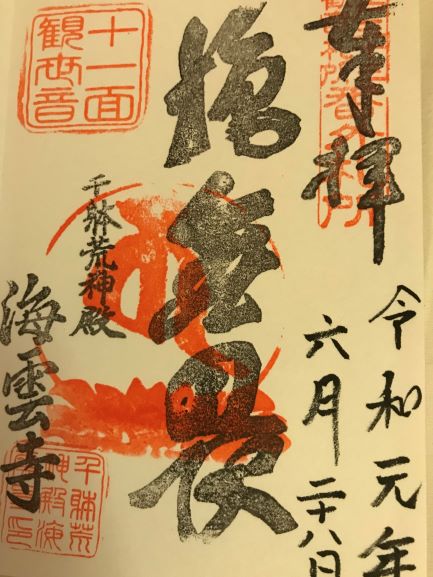 奉拝
令和元年
六月二十八日
施無畏
十一面
観世音
千躰荒神殿
海雲寺
千躰荒
神殿海